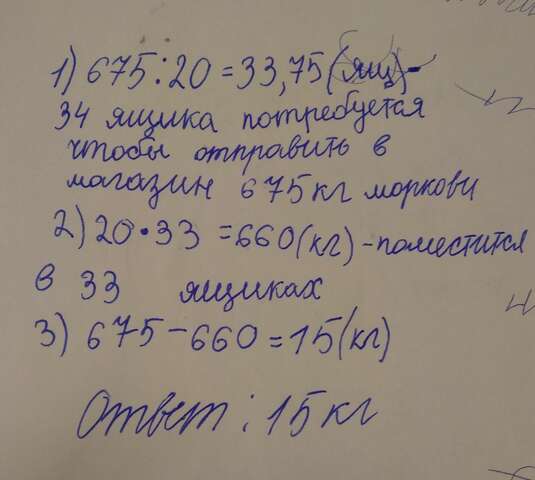 1) 675:20=33,75(ящ)-
34 ящика потребуется
чтобы отправить в
магазин 675кг моркови
2) 20•33=660(кг)-поместится
в 33 ящиках
3) 675-660=15(кг)
Ответ: 15кг